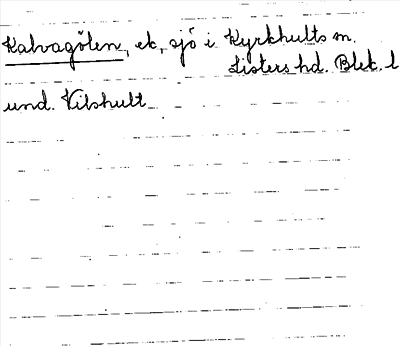 Kalvagölen, ek, sjö i Kyrkhults m.
Listers hd. Blek. l
und. Vilshult